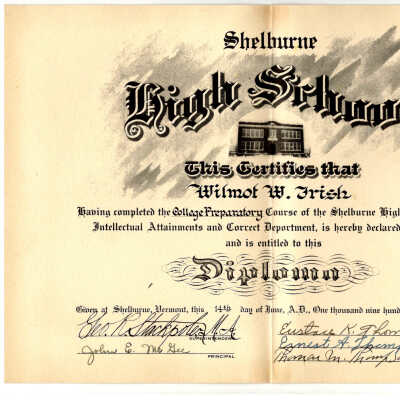 Shelburne
High School
This Certifies that
Wilmot W. Irish
Having completed the College Preparatory Course of the Shelburne High
Intellectual Attainments and Correct Deportment, is hereby declared
and is entitled to this
Diploma
Given at Shelburne, Vermont, this 14th day of June, A.D., One thousand nine hund
Geo. R. Stackpole M.A. Eustace R. Thom
SUPERINTENDENT Ernest A. Thomp
John E. McGee Thomas M. Thomp
PRINCIPAL